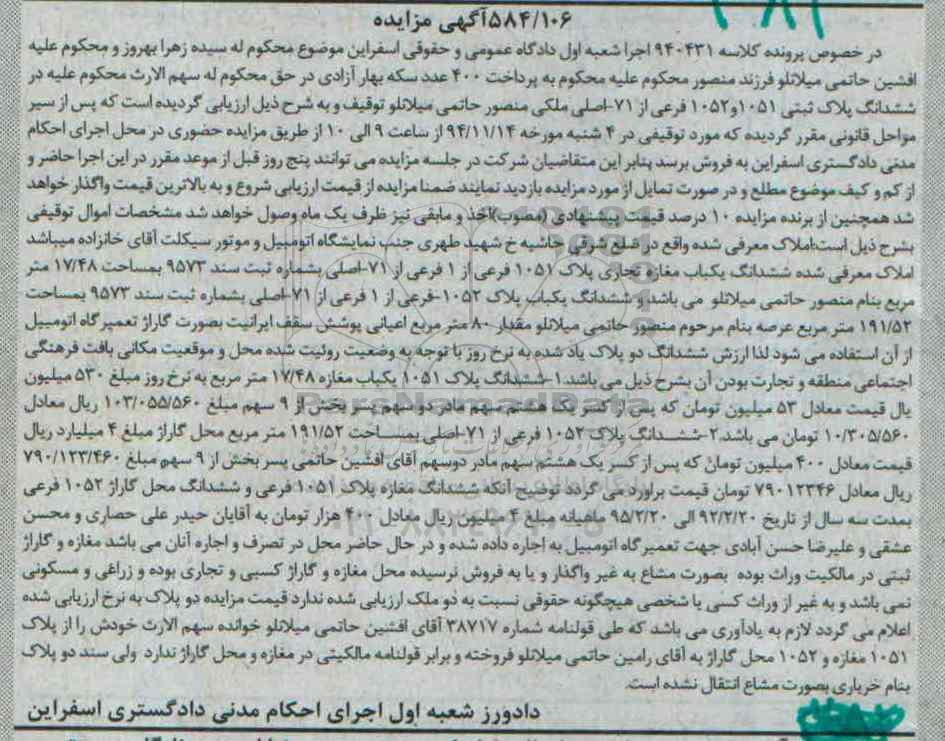 ۵۸۴/۱۰۶آگهی مزایده
در خصوص پرونده کلاسه ۹۴۰۴۳۱ اجرا شعبه اول دادگاه عمومی و حقوقی اسفراین موضوع محکوم له سیده زهرا بهروز و محکوم علیه
افشین حاتمی میلانلو فرزند منصور محکوم علیه محکوم به پرداخت ۴۰۰ عدد سکه بهار آزادی در حق محکوم له سهم الارث محکوم علیه در
ششدانگ پلاک ثبتی ۱۰۵۱و۱۰۵۲ فرعی از ۷۱-اصلی ملکی منصور حاتمی میلانلو توقیف و به شرح ذیل ارزیابی گردیده است که پس از سیر
مواحل قانونی مقرر گردیده که مورد توقیفی در ۴ شنبه مورخه ۹۴/۱۱/۱۴ از ساعت ۹ الی ۱۰ از طریق مزایده حضوری در محل اجرای احکام
مدنی دادگستری اسفراین به فروش برسد بنابر این متقاضیان شرکت در جلسه مزایده می توانند پنج روز قبل از موعد مقرر در این اجرا حاضر و
از کم و کیف موضوع مطلع و در صورت تمایل از مورد مزایده بازدید نمایند ضمنا مزایده از قیمت ارزیابی شروع و به بالاترین قیمت واگذار خواهد
شد همچنین از برنده مزایده ۱۰ درصد قیمت پیشنهادی (مصوب)اخذ و مابقی نیز ظرف یک ماه وصول خواهد شد مشخصات اموال توقیفی
بشرح ذیل است:املاک معرفی شده واقع در ضلع شرقی حاشیه خ شهید طهری جنب نمایشگاه اتومبیل و موتور سیکلت آقای خانزاده میباشد
املاک معرفی شده ششدانگ یکباب مغازه تجاری پلاک ۱۰۵۱ فرعی از ۱ فرعی از ۷۱-اصلی بشماره ثبت سند ۹۵۷۳ بمساحت ۱۷/۴۸ متر
مربع بنام منصور حاتمی میلانلو می باشد و ششدانگ یکباب پلاک ۱۰۵۲-فرعی از ۱ فرعی از ۷۱-اصلی بشماره ثبت سند ۹۵۷۳ بمساحت
۱۹۱/۵۲ متر مربع عرصه بنام مرحوم منصور حاتمی میلانلو مقدار ۸۰ متر مربع اعیانی پوشش سقف ایرانیت بصورت گاراژ تعمیر گاه اتومبیل
از آن استفاده می شود لذا ارزش ششدانگ دو پلاک یاد شده به نرخ روز با توجه به وضعیت روئیت شده محل و موقعیت مکانی بافت فرهنگی
اجتماعی منطقه و تجارت بودن آن بشرح ذیل می باشد.۱-ششدانگ پلاک ۱۰۵۱ یکباب مغازه ۱۷/۴۸ متر مربع به نرخ روز مبلغ ۵۳۰ میلیون
یال قیمت معادل ۵۳ میلیون تومان که پس از کسر یک هشتم سهم مادر دو سهم پسر بخش از ۹ سهم مبلغ ۱۰۳/۰۵۵/۵۶۰ ریال معادل
۱۰/۳۰۵/۵۶۰ تومان می باشد.۲-ششدانگ پلاک ۱۰۵۲ فرعی از ۷۱-اصلی بمساحت ۱۹۱/۵۲ متر مربع محل گاراژ مبلغ ۴ میلیارد ریال
قیمت معادل ۴۰۰ میلیون تومان که پس از کسر یک هشتم سهم مادر دوسهم آقای افشین حاتمی پسر بخش از ۹ سهم مبلغ ۷۹۰/۱۲۳/۴۶۰
ریال معادل ۷۹۰۱۲۳۴۶ تومان قیمت براورد می گردد توضیح آنکه ششدانگ مغازه پلاک ۱۰۵۱ فرعی و ششدانگ محل گاراژ ۱۰۵۲ فرعی
بمدت سه سال از تاریخ ۹۲/۲/۲۰ الی ۹۵/۲/۲۰ ماهیانه مبلغ ۴ میلیون ریال معادل ۴۰۰ هزار تومان به آقایان حیدر علی حصاری و محسن
عشقی و علیرضا حسن آبادی جهت تعمیر گاه اتومبیل به اجاره داده شده و در حال حاضر محل در تصرف و اجاره آنان می باشد مغازه و گاراژ
ثبتی در مالکیت وراث بوده بصورت مشاع به غیر واگذار و یا به فروش نرسیده محل مغازه و گاراژ کسبی و تجاری بوده و زراعی و مسکونی
نمی باشد و به غیر از وراث کسی یا شخصی هیچگونه حقوقی نسبت به دو ملک ارزیابی شده ندارد قیمت مزایده دو پلاک به نرخ ارزیابی شده
اعلام می گردد لازم به یادآوری می باشد که طی قولنامه شماره ۳۸۷۱۷ آقای افشین حاتمی میلانلو خوانده سهم الارث خودش را از پلاک
۱۰۵۱ مغازه و ۱۰۵۲ محل گاراژ به آقای رامین حاتمی میلانلو فروخته و برابر قولنامه مالکیتی در مغازه و محل گاراژ ندارد ولی سند دو پلاک
بنام خریاری بصورت مشاع انتقال نشده است.
دادورز شعبه اول اجرای احکام مدنی دادگستری اسفراین
ParsNamadData